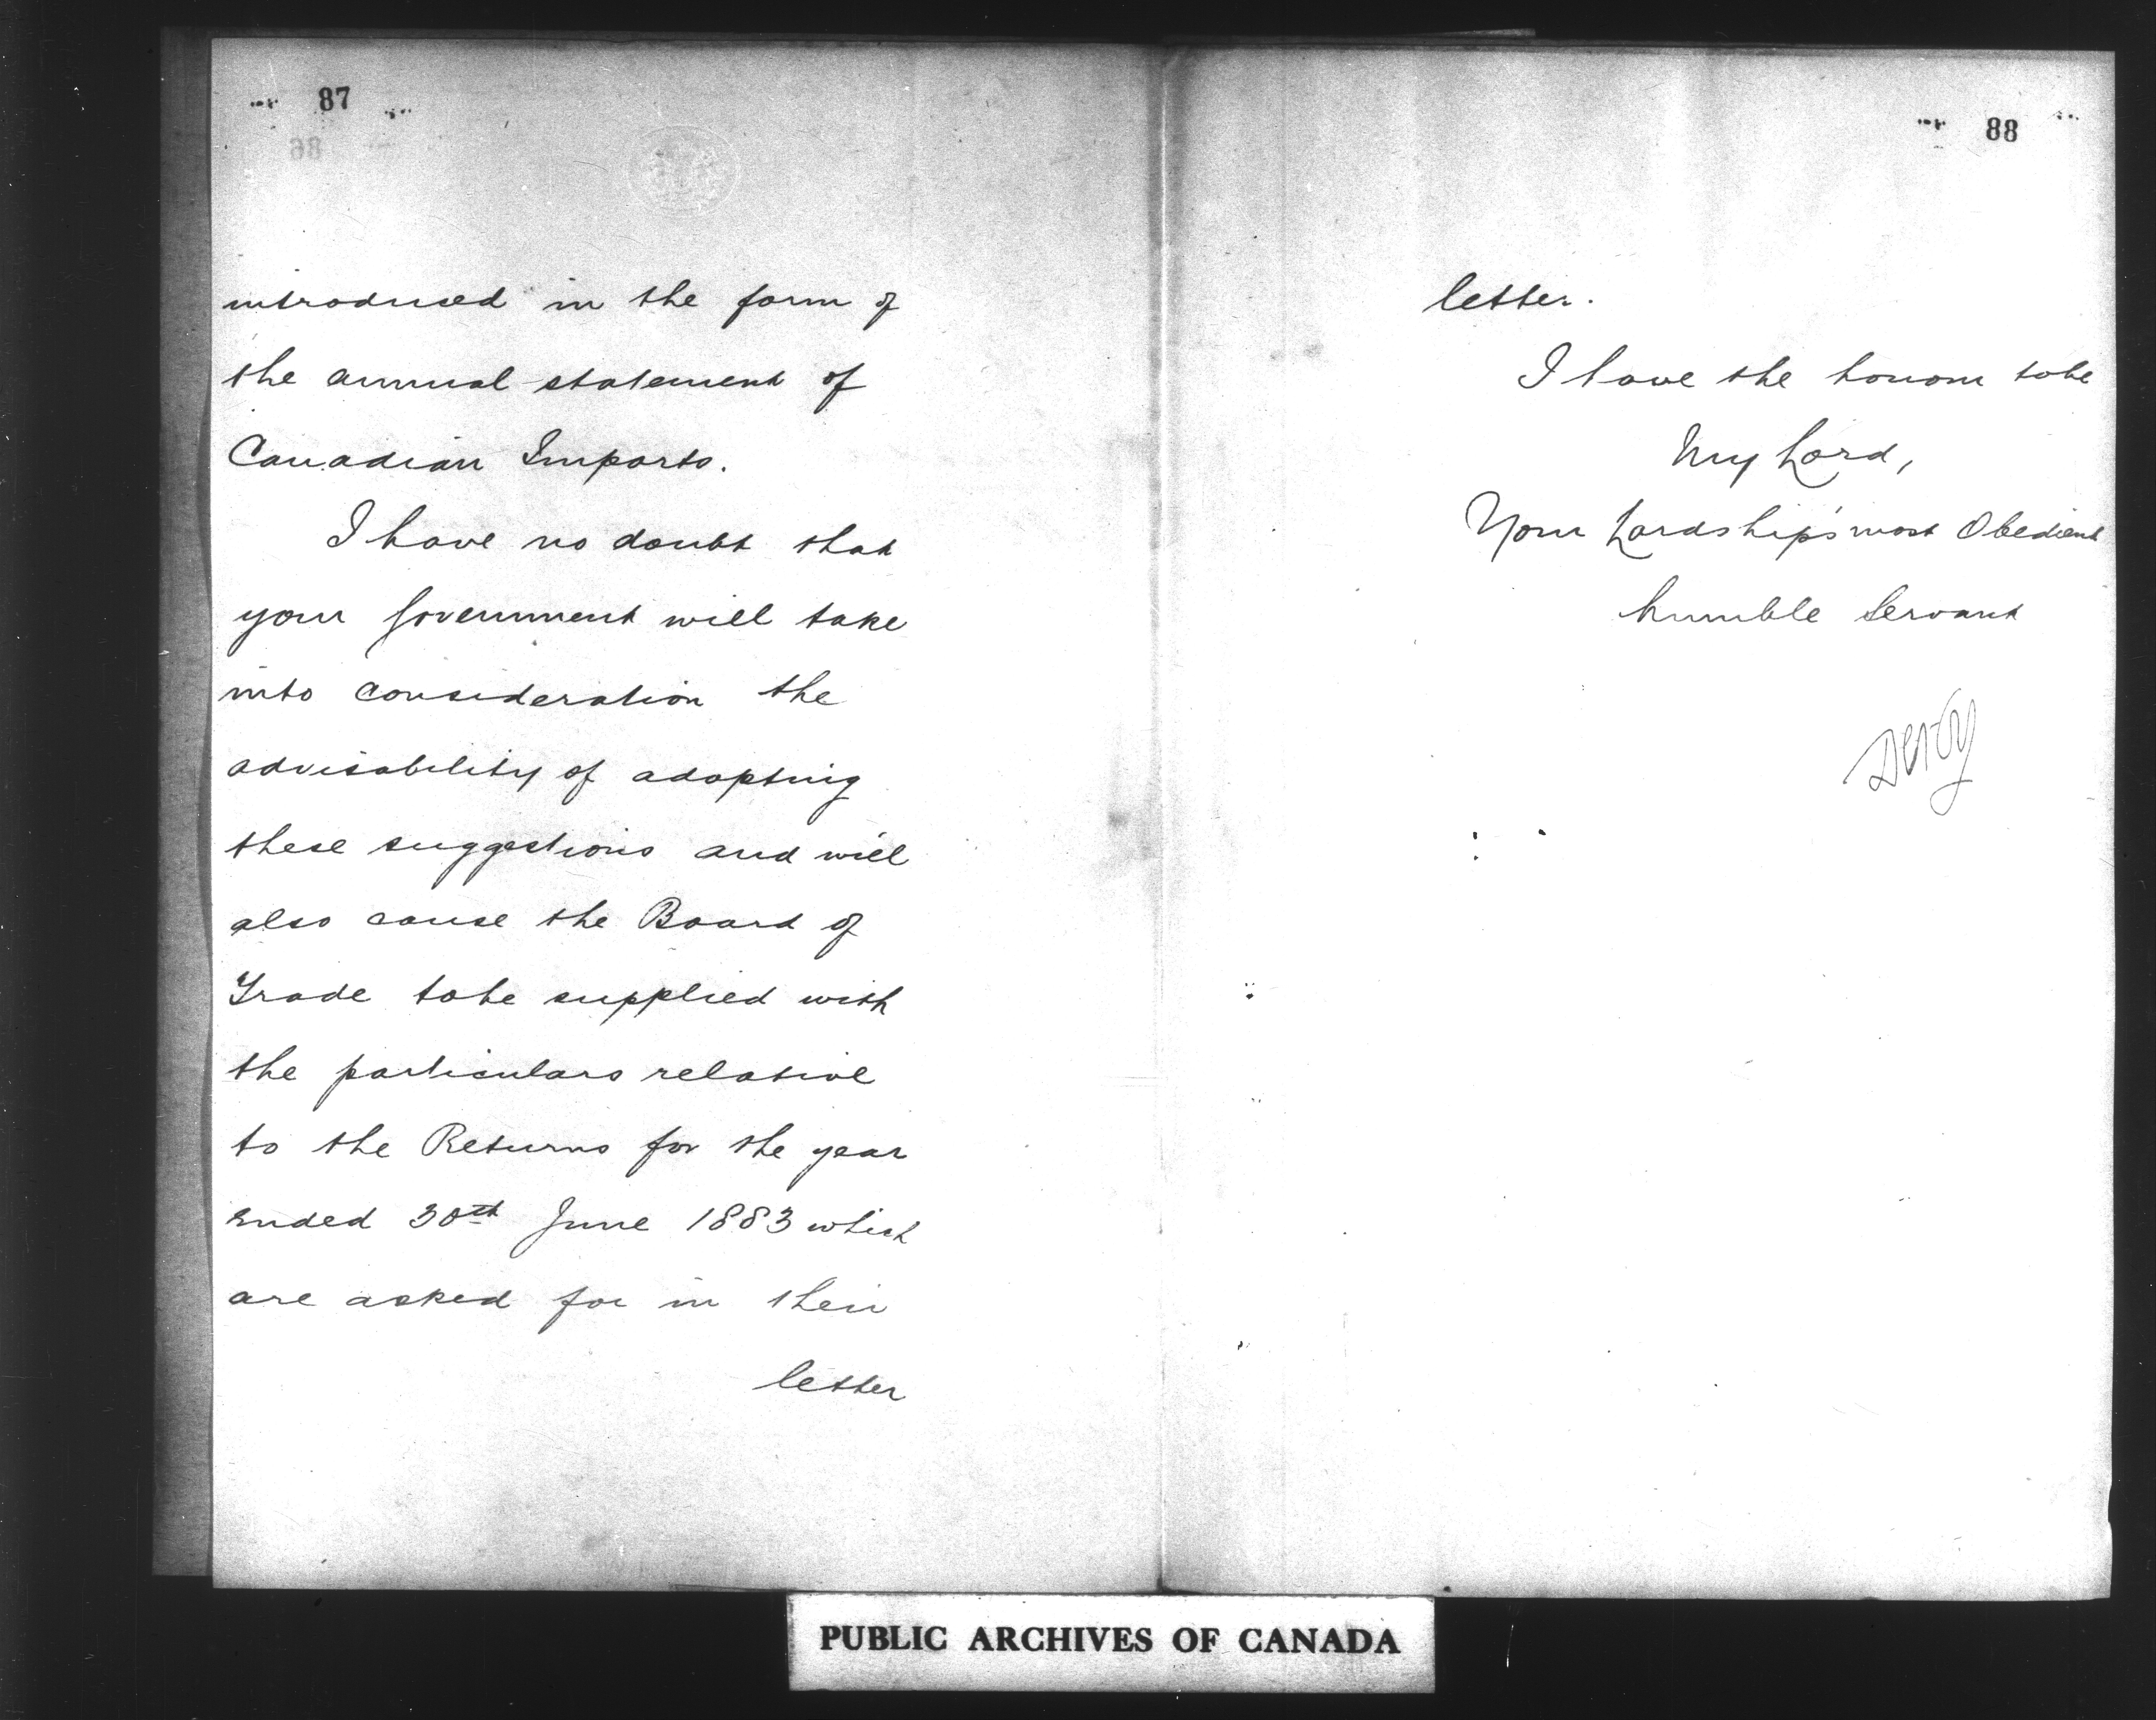 87
introduced in the form of
the annual statement of
Canadian Imports.
I have no doubt that
your Government will take
into consideration the
advisability of adopting
these suggestions and will
also cause the Board of
Trade to be supplied with
the particulars relative
to the Returns for the year
ended 30th June 1883 which
are asked for in their
letter
88
letter.
I have the honour to be
My Lord,
Your Lordship's most Obedient
humble Servant
Derby
PUBLIC ARCHIVES OF CANADA